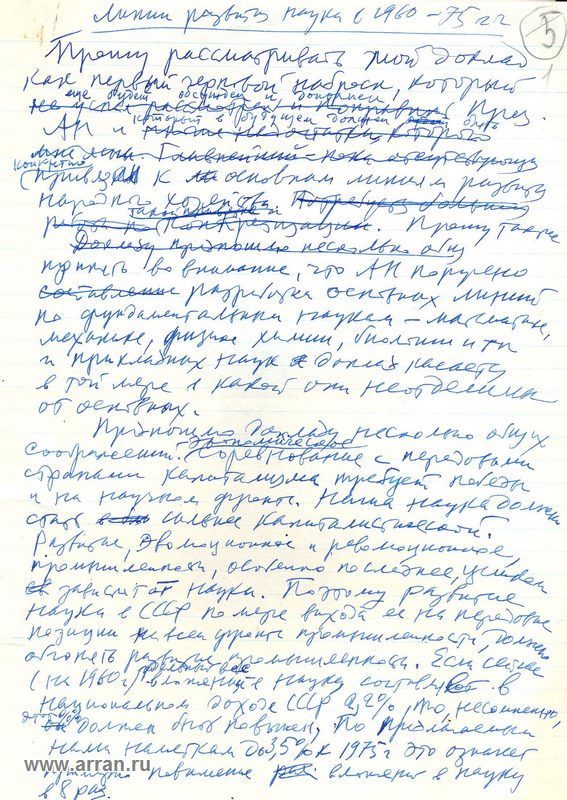 Линии развития науки в 1960–75 гг
5
1
Прошу рассматривать мой доклад
как первый черновой набросок, который
еще будет обсуждаться и дополнен
не успел рассмотреть и През.
АН и который в будущем должен быть
многие недостатки, которого
Главнейший – пока отсутствующая
конкретно
привязан к основным линиям развития
народн. хозяйства Потребует большей
работы по Конкретизации. Прошу также
Докладу предпошлю несколько общ
принять во внимание, что АН поручено
составление разработка основных линий
по фундаментальным наукам – математике,
механике, физике химии, биологии и тп
и прикладных наук доклад касается
в той мере в какой они неотделимы
от основных.
Предпошлю докладу несколько общих
экономическое
соображений. Соревнование с передовыми
странами капитализма требует победы
и на научном фронте. Наша наука должна
стать сильнее капиталистической.
Развитие, эволюционное и революционное,
промышленности, особенно последнее,
зависит от науки. Поэтому развитие
науки в СССР по мере выхода ее на передовые
позиции на всем фронте промышленности, должно
обгонять развитие промышленности. Если сейчас
(на 1960 г) вложение в науку составляет в
национальном доходе СССР 2,2%, то, несомненно,
этот %
он должен быть повышен, по предлагаемым
нами наметкам до 3,5% к 1975 г это означает
повышение вложений в науку
в 8 раз.
www.arran.ru